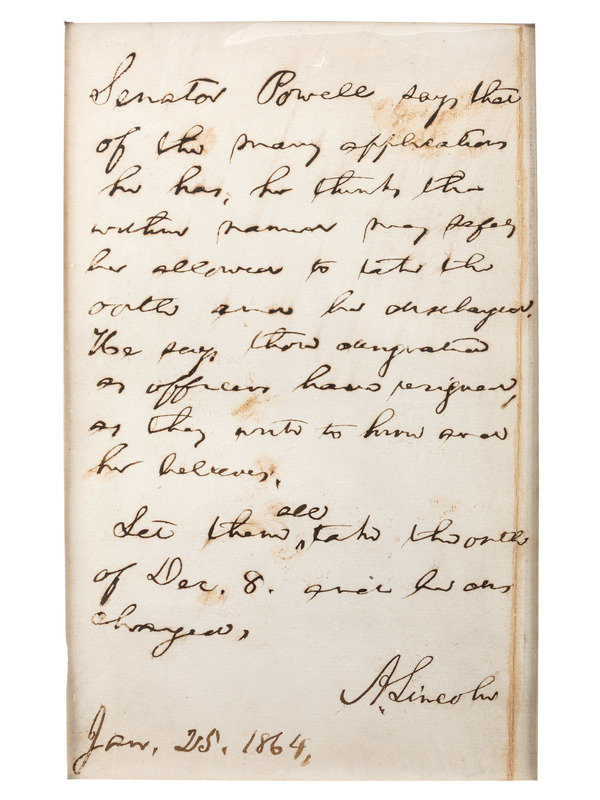 Senator Powell says that
of the many applications
he has, he thinks the
within named may safely
be allowed to take the
oath and be discharged.
He says those designated
as officers have resigned,
as they write to him and
he believes.
Let them all take the oath
of Dec. 8. and be dis
charged.
A. Lincoln
Jan. 25. 1864.